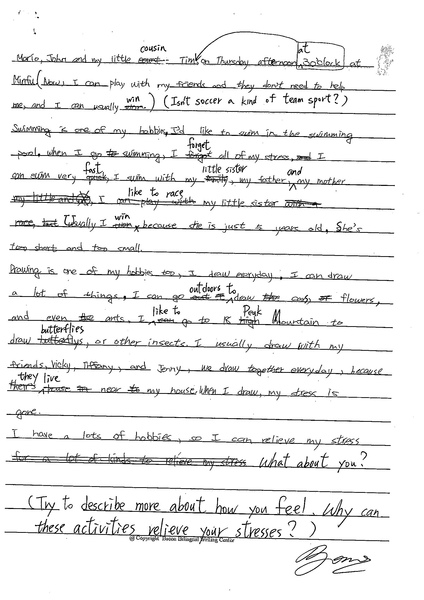 cousin
Mario, John and my little Tim on Thursday afternoon at 3o'clock at
Minfu (Now, I can play with my friends and they don't need to help
me, and I can usually win) (Isn't soccer a kind of team sport?)
Swimming is one of my hobbie, I'd like to swim in the swimming
pool, when I go swimming, I forget all of my stress, I
can swim very fast, I swim with my little sister, my father and my mother
I like to race my little sister
Usually I win because she is just 5 years old, She's
too short and too small.
Drawing is one of my hobbies too, I draw everyday, I can draw
a lot of things, I can go outdoors to draw cars, flowers,
and even ants. I like to go to Peak Mountain to
draw butterflies, or other insects. I usually draw with my
friends, Vicky, Tiffany, and Jenny, we draw together everyday, because
they live near my house, when I draw, my stress is
gone.
I have a lots of hobbies, so I can relieve my stress
for a lot of kinds to relieve my stress What about you?
(Try to describe more about how you feel. Why can
these activities relieve your stresses?)
@Copyright Bilingual Writing Center